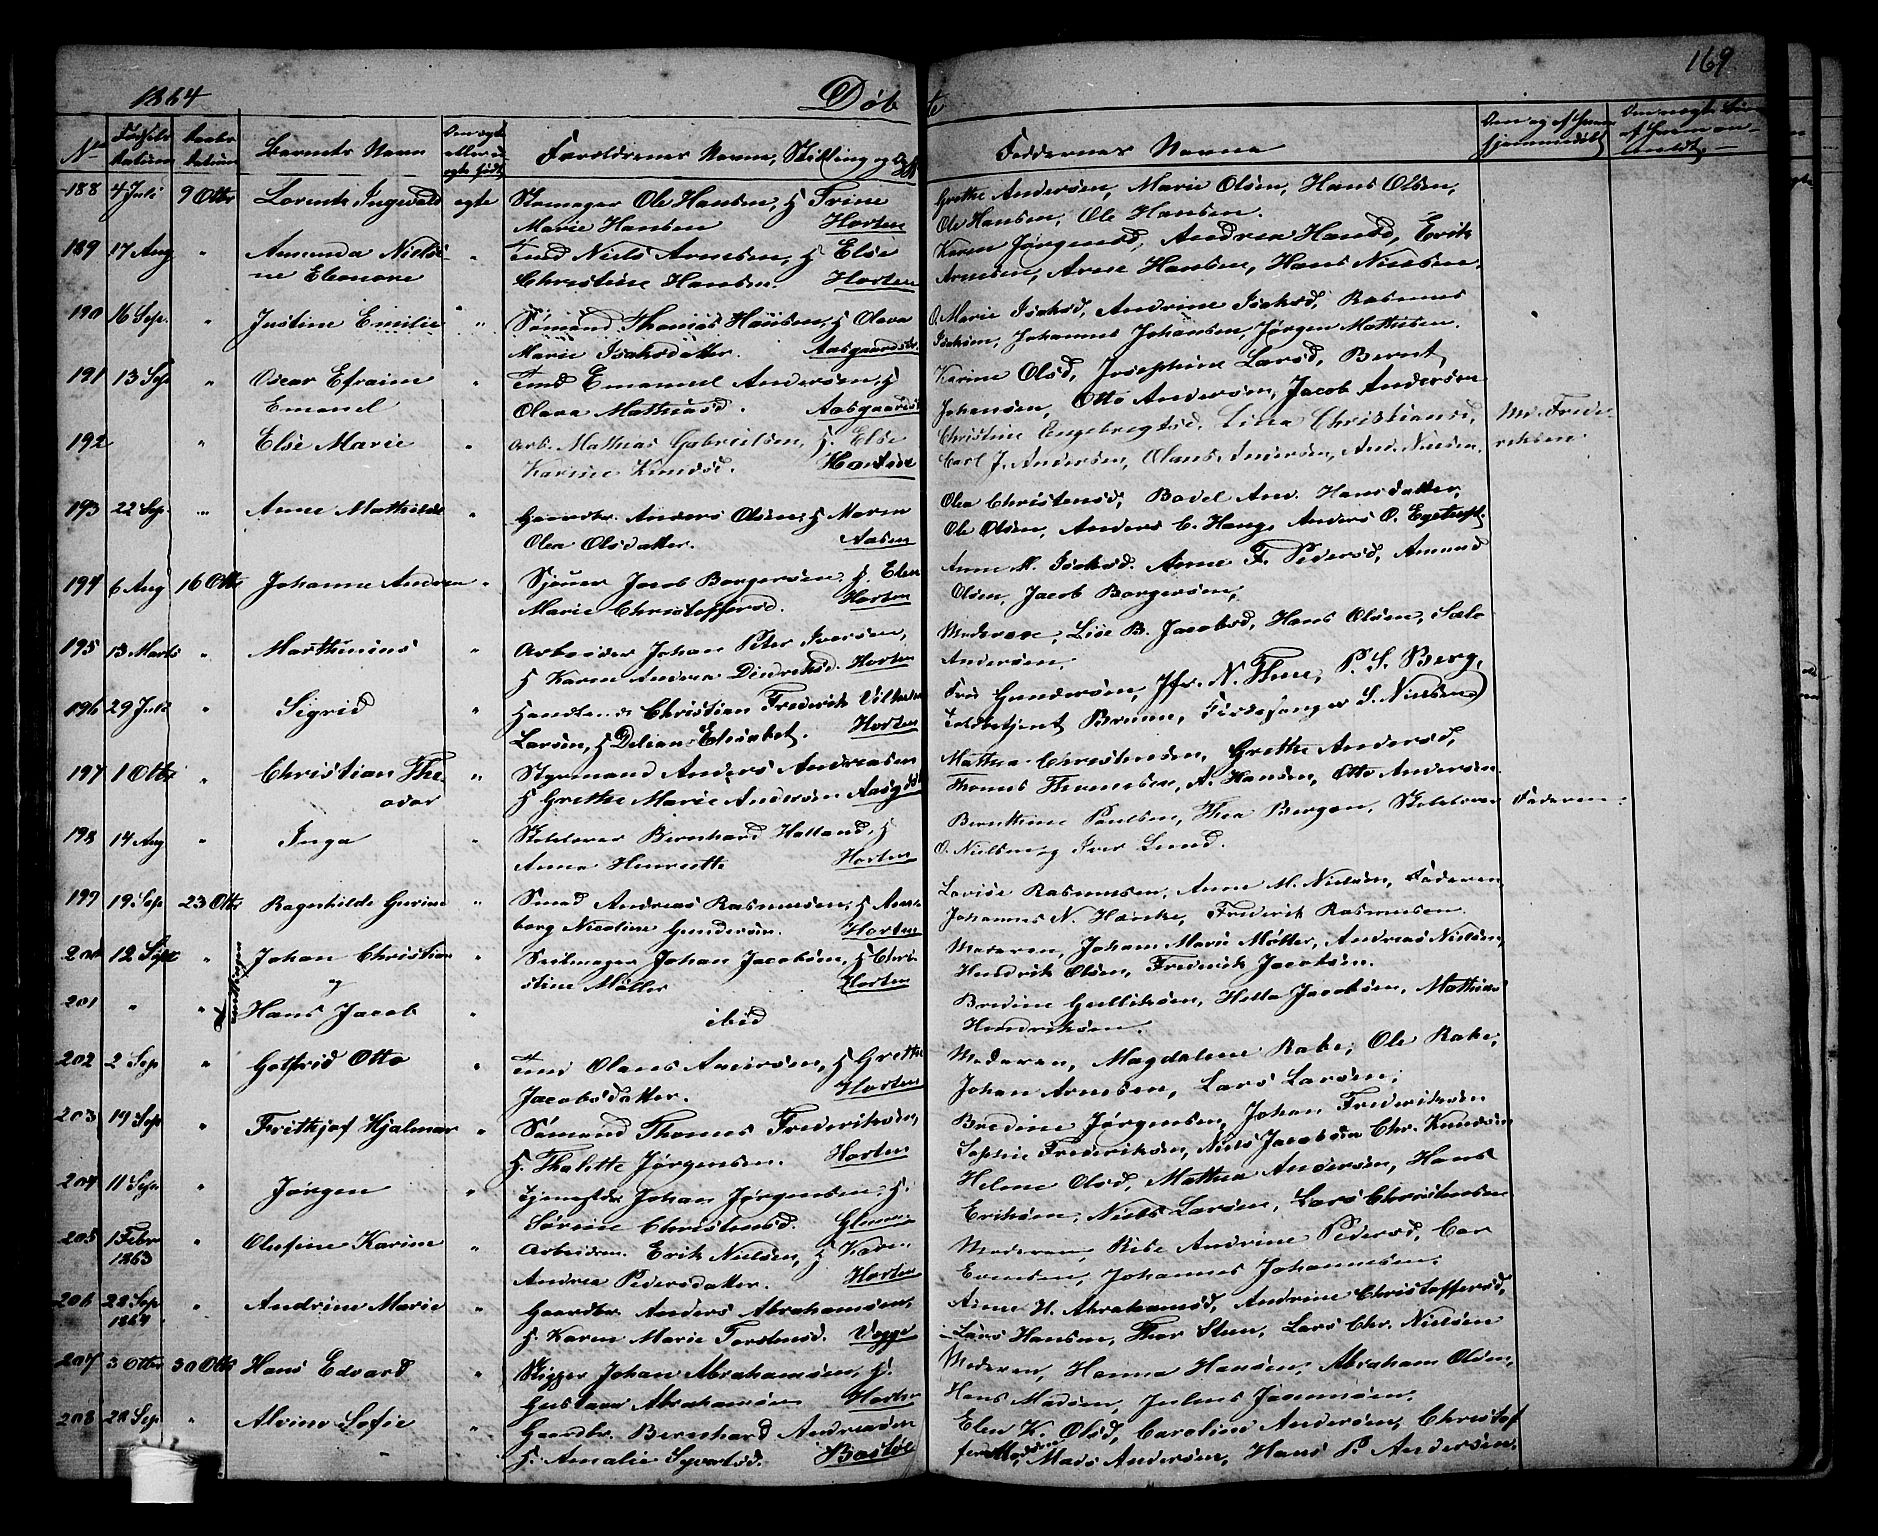 1864
Døb
te
169
No
Fødsels
datum
Daabs
datum
Barnets Navn
Om ægte
eller u-
ægte født
Forældrenes Navne, Stilling og
Faddernes Navne
Om og af hvem
hjemmedøbt
188 4 Juli 9 Octbr Lorents Ingevald ægte Skomager Ole Hansen, H Trine
Marie Hansen Horten
Grethe Andersen, Marie Olsen, Hans Olsen,
Ole Hansen, Ole Hansen.
189 17 Aug " Amunda Nielsi- " Tmd Niels Arnesen, H Else
ne Elenore Christine Hansen. Horten
Karen Jørgensd, Andrea Hansd, Erik
Arnesen, Arne Hansen, Hans Nielsen.
190 16 Sep. " Justine Emilie " Sømand Thomas Hansen, H Olava
Marie Isaksdatter. Aasgaardstr.
O. Marie Isaksd, Andrine Isaksd, Rasmus
Isaksen, Johannes Johansen, Jørgen Mathisen.
191 13 Sep " Oscar Efraim " Tmd Emanuel Andersen, H
Emanel Olava Mathiasd. Aasgaardst
Karine Olsd, Josephine Larsd, Bernt
Johansen, Otto Andersen, Jacob Andersen
192 " Else Marie " Arb. Mathias Gabrielsen, H. Else
Karine Knudsd. Horten
Christine Engebregtsd, Lina Christiansd,
Carl J. Andersen, Olaus Andersen, And. Nielsen.
M. Frede
riksen.
193 22 Sep. " Anne Mathilde " Gaardbr. Anders Olsen, H Maren
Olea Olsdatter. Aasen
Olea Christensd, Bodel And. Hansdatter,
Ole Olsen, Anders C. Haug, Anders O.
194 6 Aug 16 Octbr Johanne Andrea " Jacob Borgersen, H. Elen
Marie Christoffersd. Horten
Anne M. Isaksd. Anne F. Pedersd, Amund
Olsen, Jacob Borgersen,
195 13 Marts " Marthinius " Arbeider Johan Peter Iversen,
H Karen Andrea Diedriksd. Horten
Moderen, Lise B. Jacobsd, Hans Olsen,
Andersen.
196 29 Juli " Sigrid " Christian Frederik
Larsen, H Elisabet. Horten
Fru Gundersen, Jfr. N. Thue, P. S. Berg,
Toldbetjent Bruun, S. Nielsen
197 1 Octbr " Christian The " Styrmand Anders Andreasen
odor H Grethe Marie Andersen Aasgdst
Mathea Christensen, Grethe Andersd,
Thomas Thomesen, A. Hansen, Otto Andersen.
198 14 Aug " Inga " Skolelærer Bernhard Halland, H
Anna Henriette Horten
Bernthine Paulsen, Thea Bergan, Skolelærer
O. Nielsen og Iver Lund.
Faderen.
199 19 Sep 23 Octbr Ragnhilde Gurine " Smed Andreas Rasmussen, H Anne
borg Nicoline Gundersen. Horten
Lovise Rasmussen, Anne M. Nielsen, Faderen,
Johannes N. Hancke, Frederik Rasmussen.
200 12 Sept " Johan Christian " Seilmager Johan Jacobsen, H Chri-
stine Møller Horten
Moderen, Johan Marie Møller, Andreas Nielsen,
Hendrik Olsen, Frederik Jacobsen.
og
Tvillinger
201 " " Hans Jacob " ibid
Bredine Gulliksen, Helle Jacobsen, Mathias
Hendriksen.
202 2 Sep " Gotfrid Otto " Tmd Olaus Andersen, H Grethe
Jacobsdatter. Horten
Moderen, Magdalene Rake, Ole Rake,
Johan Arnesen, Lars Larsen.
203 19 Sep " Frithjof Hjalmar " Sømand Thomas Frederiksen,
H. Thalitte Jørgensen. Horten
Bredine Jørgensen, Johan Frederiksen
Sophie Frederiksen, Niels Jacobsen Chr. Knudsen
204 11 Sep " Jørgen " Johan Jørgensen, H.
Sørine Christensd.
Helene Olsd, Mathea Andersen, Hans
Eriksen, Niels Larsen, Lars Christensen
205 1 Febr " Olufine Karine " Arbeider. Erik Nielsen, H Karen
1863
Andrea Pedersdatter. Horten
Moderen, Andrine Pedersd,
Evensen, Johannes Johannesen.
206 28 Sep " Andrine Marie " Gaardbr Anders Abrahamsen,
1864
H Karen Marie Torstensd.
Anne H. Abrahamsd, Andrine Christoffersd,
Lars Hansen, Thor Steen, Lars Chr. Nielsen
207 3 Octbr 30 Octbr Hans Edvard " Rigger Johan Abrahamsen, H.
Gustava Abrahamsen Horten
Moderen, Hanna Hansen, Abraham Olsen,
Hans Madsen, Julius
208 20 Sep " Alvine Sofie " Gaardbr. Bernhard Andreasen
H. Amalie Syvertsd. Bastøe
Elen K. Olsd, Caroline Andersen, Christof
fer Mads Andersen, Hans P. Andersen.